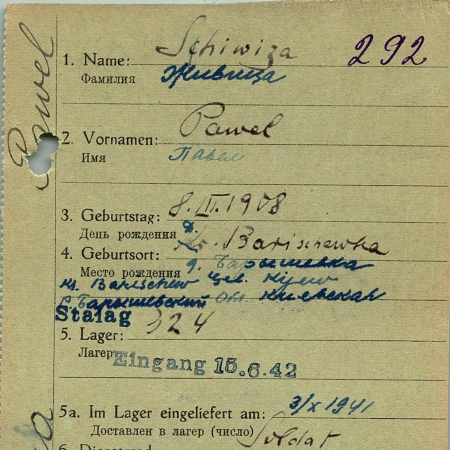 292
1. Name: Schiwiza
Фамилия Живица
Pawel
2. Vornamen: Pawel
Имя Павел
3. Geburtstag: 8.II.1908
День рождения д.
4. Geburtsort: Barischewka
Место рождения д. Барышевка
Barischew Kijew
Барышевский Обл. Киевская
Stalag 324
5. Lager:
Лагерь Eingang 15.6.42
5a. Im Lager eingeliefert am: 3/X 1941
Доставлен в лагерь (число) Soldat
6. Dienstgrad